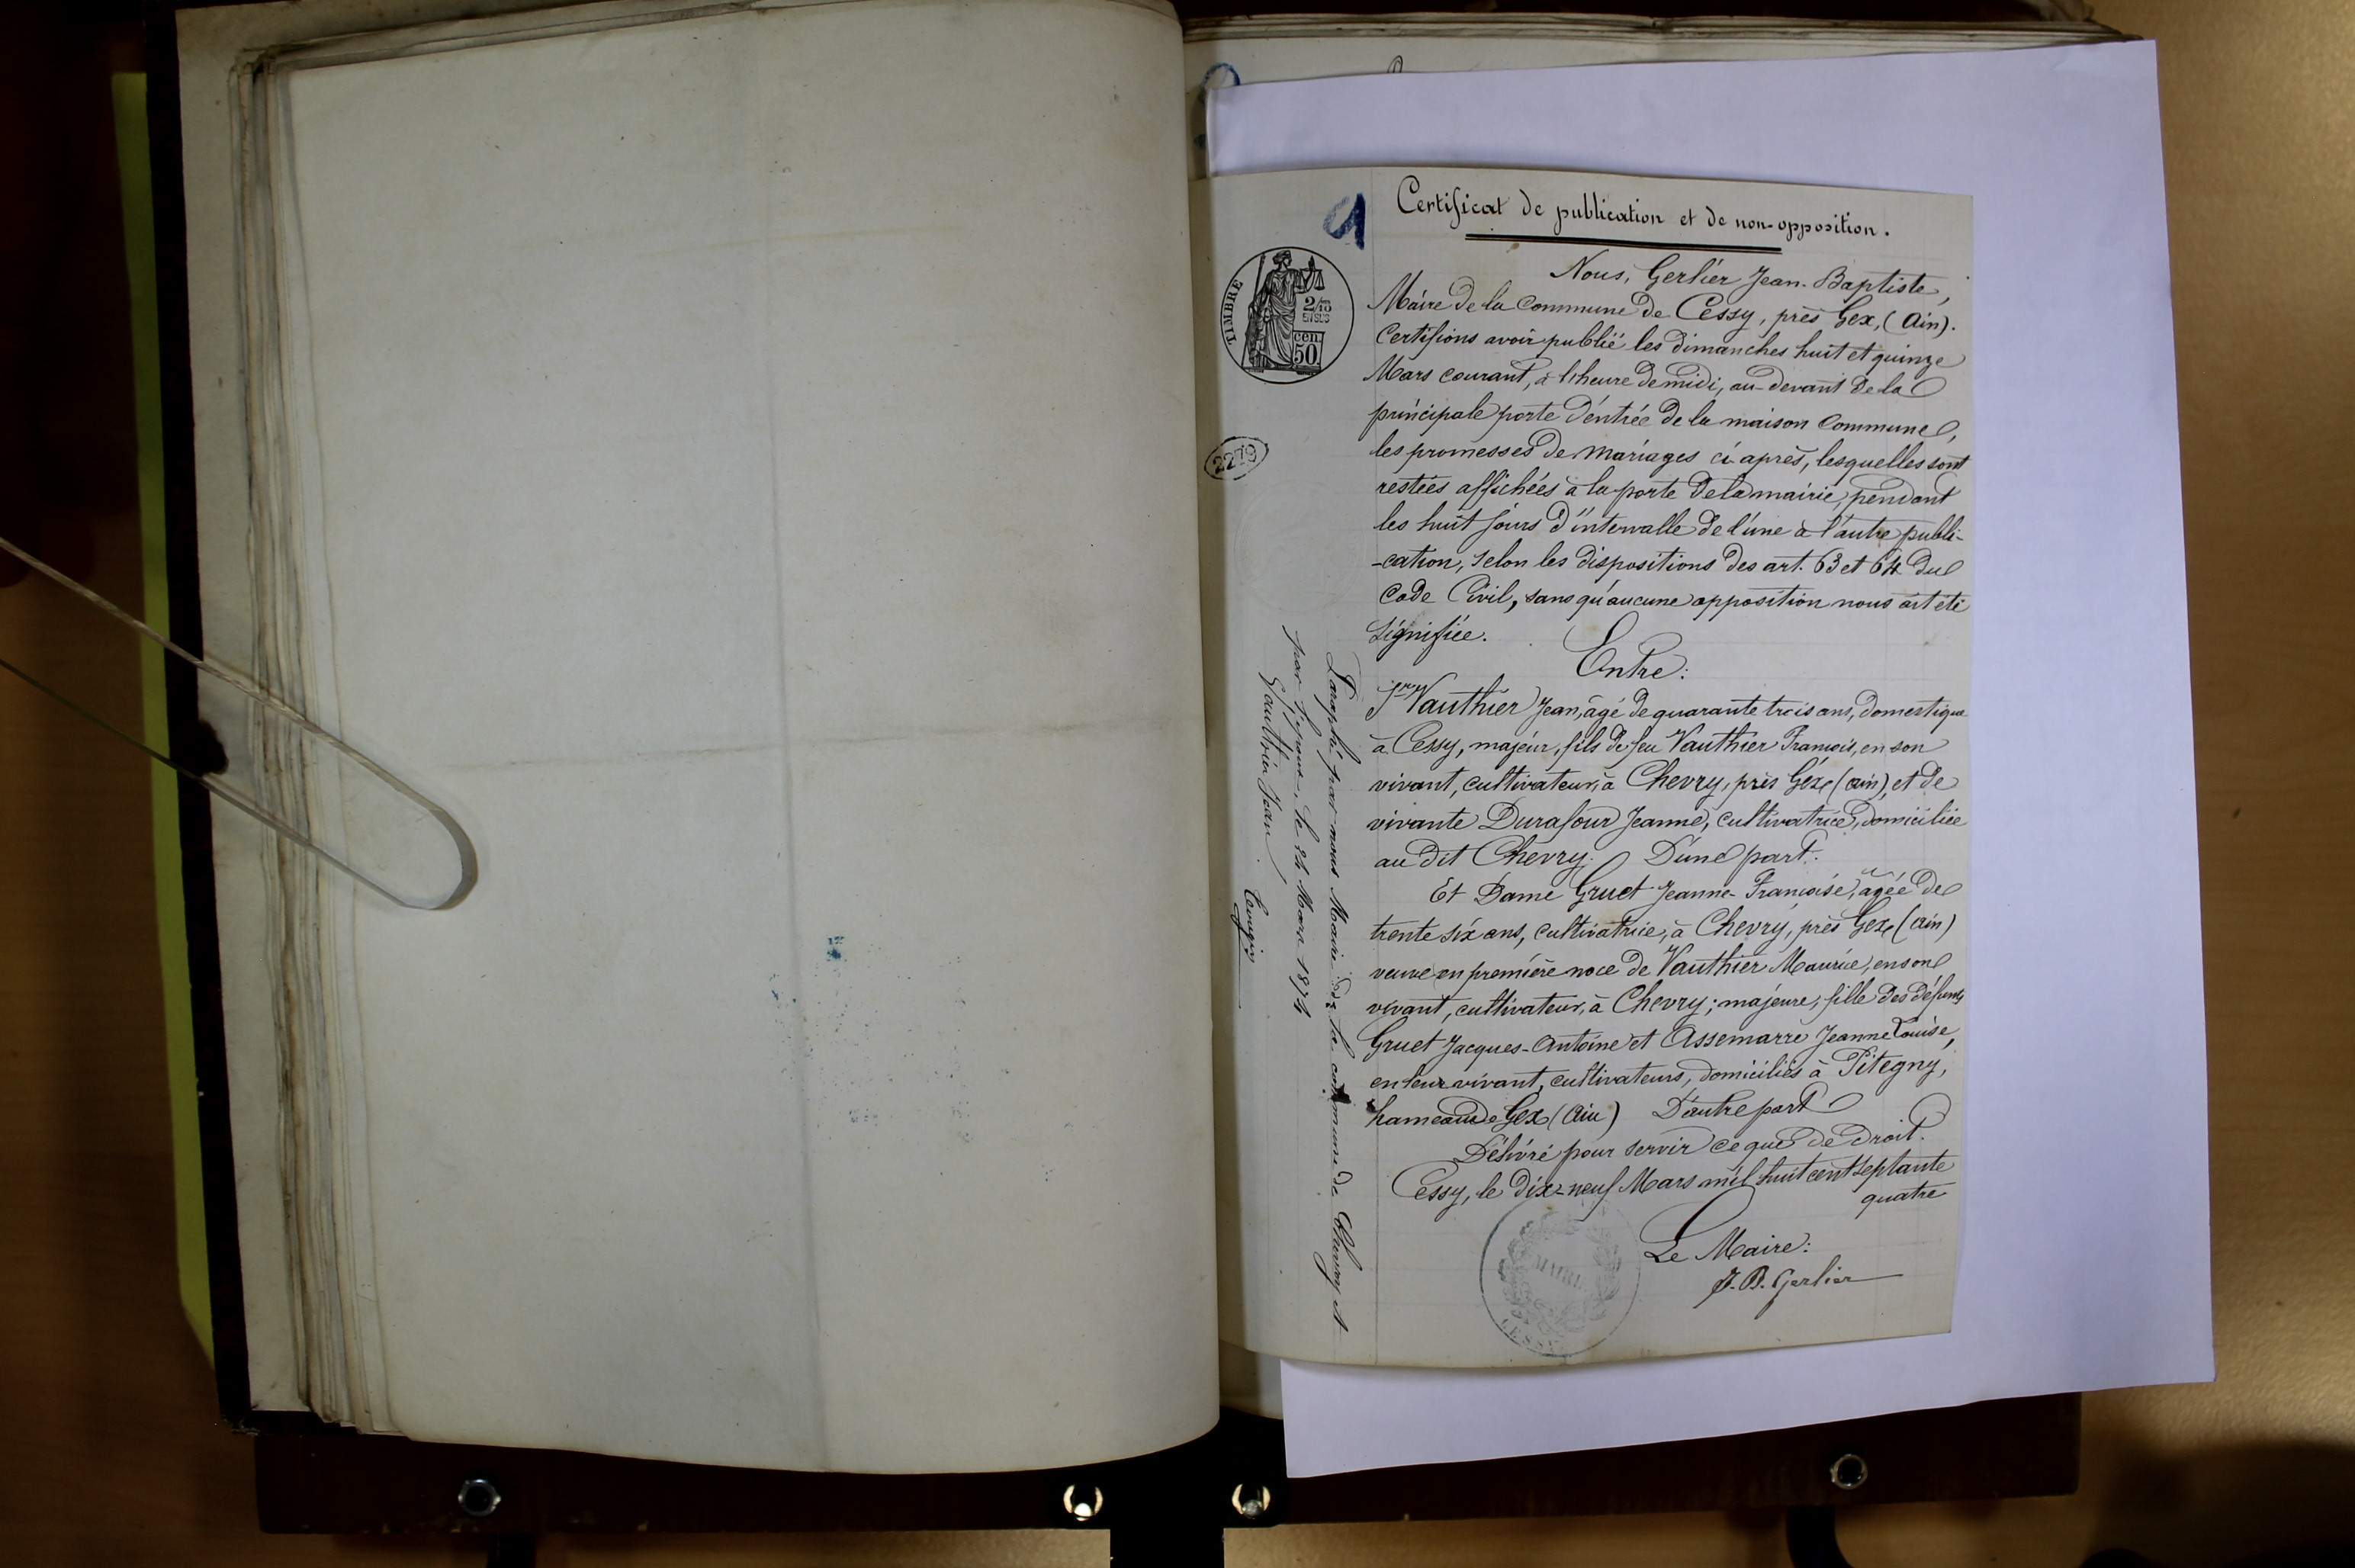 9
Certificat de publication et de non-opposition.
TIMBRE
2/10
EN SUS
cen
50
2279
Nous, Gerlier Jean-Baptiste,
Maire de la Commune de Cessy, près Gex, (Ain).
Certifions avoir publié les dimanches huit et quinze
Mars courant, à l'heure de midi, au-devant de la
principale porte d'entrée de la maison Commune,
les promesses de mariages ci après, lesquelles sont
restées affichées à la porte de la mairie, pendant
les huit jours d'intervalle de l'une à l'autre publi-
-cation, selon les dispositions des art. 63 et 64 du
Code Civil, sans qu'aucune opposition nous ait été
signifiée.
Entre:
Vauthier Jean, âgé de quarante trois ans, domestique
à Cessy, majeur, fils de feu Vauthier François, en son
vivant, cultivateur, à Chevry, près Gex, (ain), et de
vivante Durafour Jeanne, cultivatrice, domiciliée
au dit Chevry. D'une part.
Et Dame Gruet Jeanne-Françoise, âgée de
trente six ans, cultivatrice, à Chevry, près Gex, (ain)
veuve en première noce de Vauthier Maurice, en son
vivant, cultivateur, à Chevry; majeure, fille des défunts
Gruet Jacques-Antoine et Assemarre Jeanne Louise,
en leur vivant, cultivateurs, domiciliés à Pitegny,
hameau de Gex (Ain) D'autre part
Délivré pour servir ce que de droit.
Cessy, le dix-neuf Mars mil huit cent septante
quatre
Le Maire:
J. B. Gerlier
MAIRIE
CESSY
Paraphé par nous Maire de la commune de Chevry et
par l'époux, le 24 Mars 1874
Gauthier Jean